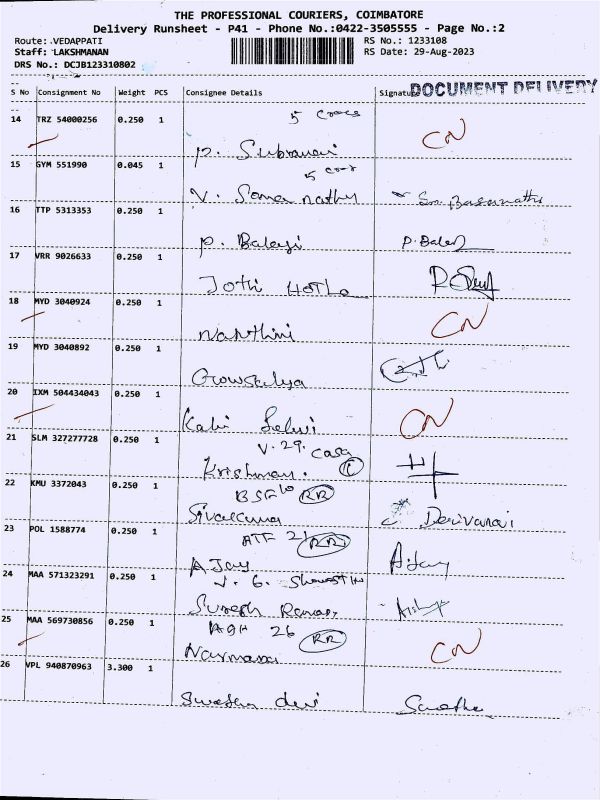 THE PROFESSIONAL COURIERS, COIMBATORE
Delivery Runsheet - P41 - Phone No.:0422-3505555 - Page No.:2
Route: VEDAPPATI
RS No.: 1233108
Staff: LAKSHMANAN
RS Date: 29-Aug-2023
DRS No.: DCJB123310802
DOCUMENT DELIVERY
S No Consignment No Weight PCS Consignee Details Signature
14 TRZ 54000256 0.250 1 CN
P.
15 GYM 551990 0.045 1
V. Soma nathy
16 TTP 5313353 0.250 1
P. Balaji P. Balaji
17 VRR 9026633 0.250 1
Jothi
18 MYD 3040924 0.250 1 CN
Nanthini
19 MYD 3040892 0.250 1
Gowsalya
20 IXM 504434043 0.250 1 CN
Kabi Selvi
21 SLM 327277728 0.250 1
V. 29.
Krishnan. C
22 KMU 3372043 0.250 1
RR
Sivakumar
23 POL 1588774 0.250 1
RR
AJay AJay
24 MAA 571323291 0.250 1
V. G.
Suresh
25 MAA 569730856 0.250 1
26 RR
CN
26 VPL 940870963 3.300 1
Swetha devi Swetha